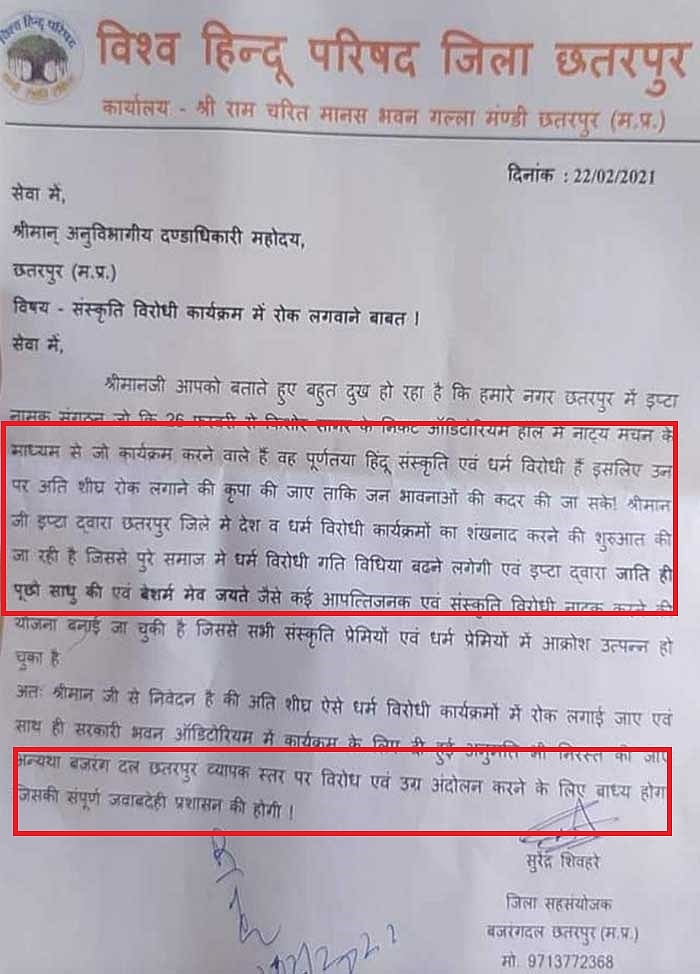 विश्व हिन्दू परिषद
विश्व हिन्दू परिषद जिला छतरपुर
कार्यालय - श्री राम चरित मानस भवन गल्ला मण्डी छतरपुर (म.प्र.)
दिनांक : 22/02/2021
सेवा में,
श्रीमान् अनुविभागीय दण्डाधिकारी महोदय,
छतरपुर (म.प्र.)
विषय - संस्कृति विरोधी कार्यक्रम में रोक लगवाने बाबत !
सेवा में,
श्रीमानजी आपको बताते हुए बहुत दुख हो रहा है कि हमारे नगर छतरपुर में इप्टा
नामक संगठन जो कि 26 फरवरी से किशोर सागर के निकट ऑडिटोरियम हाल मे नाट्य मंचन के
माध्यम से जो कार्यक्रम करने वाले हैं वह पूर्णतया हिंदू संस्कृति एवं धर्म विरोधी हैं इसलिए उन
पर अति शीघ्र रोक लगाने की कृपा की जाए ताकि जन भावनाओं की कदर की जा सके! श्रीमान
जी इप्टा द्वारा छतरपुर जिले मे देश व धर्म विरोधी कार्यक्रमों का शंखनाद करने की शुरुआत की
जा रही है जिससे पुरे समाज मे धर्म विरोधी गति विधिया बढने लगेगी एवं इप्टा द्वारा जाति ही
पूछो साधु की एवं बेशर्म मेव जयते जैसे कई आपत्तिजनक एवं संस्कृति विरोधी नाटक करने की
योजना बनाई जा चुकी है जिससे सभी संस्कृति प्रेमियों एवं धर्म प्रेमियों में आक्रोश उत्पन्न हो
चुका है
अतः श्रीमान जी से निवेदन है की अति शीघ्र ऐसे धर्म विरोधी कार्यक्रमों में रोक लगाई जाए एवं
साथ ही सरकारी भवन ऑडिटोरियम में कार्यक्रम के लिए दी हुई अनुमति भी निरस्त की जाए
अन्यथा बजरंग दल छतरपुर व्यापक स्तर पर विरोध एवं उग्र अंदोलन करने के लिए बाध्य होगा
जिसकी संपूर्ण जवाबदेही प्रशासन की होगी !
सुरेंद्र शिवहरे
जिला सहसंयोजक
बजरंगदल छतरपुर (म.प्र.)
मो. 9713772368